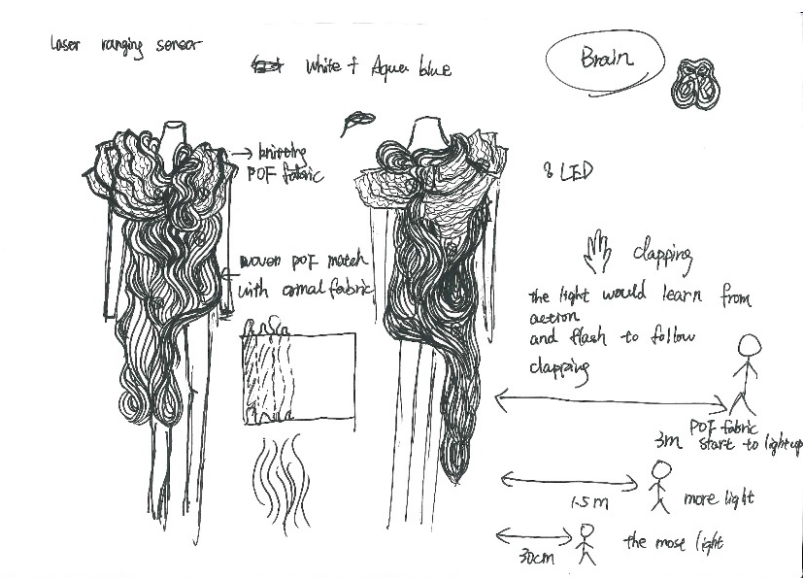 Laser ranging sensor
White + Aqua blue
Brain
→ knitting
POF fabric
8 LED
woven POF match
with ormal fabric
clapping
the light would learn from
action
and flash to follow
clapping
POF fabric
3m start to light up
1.5m more light
30cm the mose light